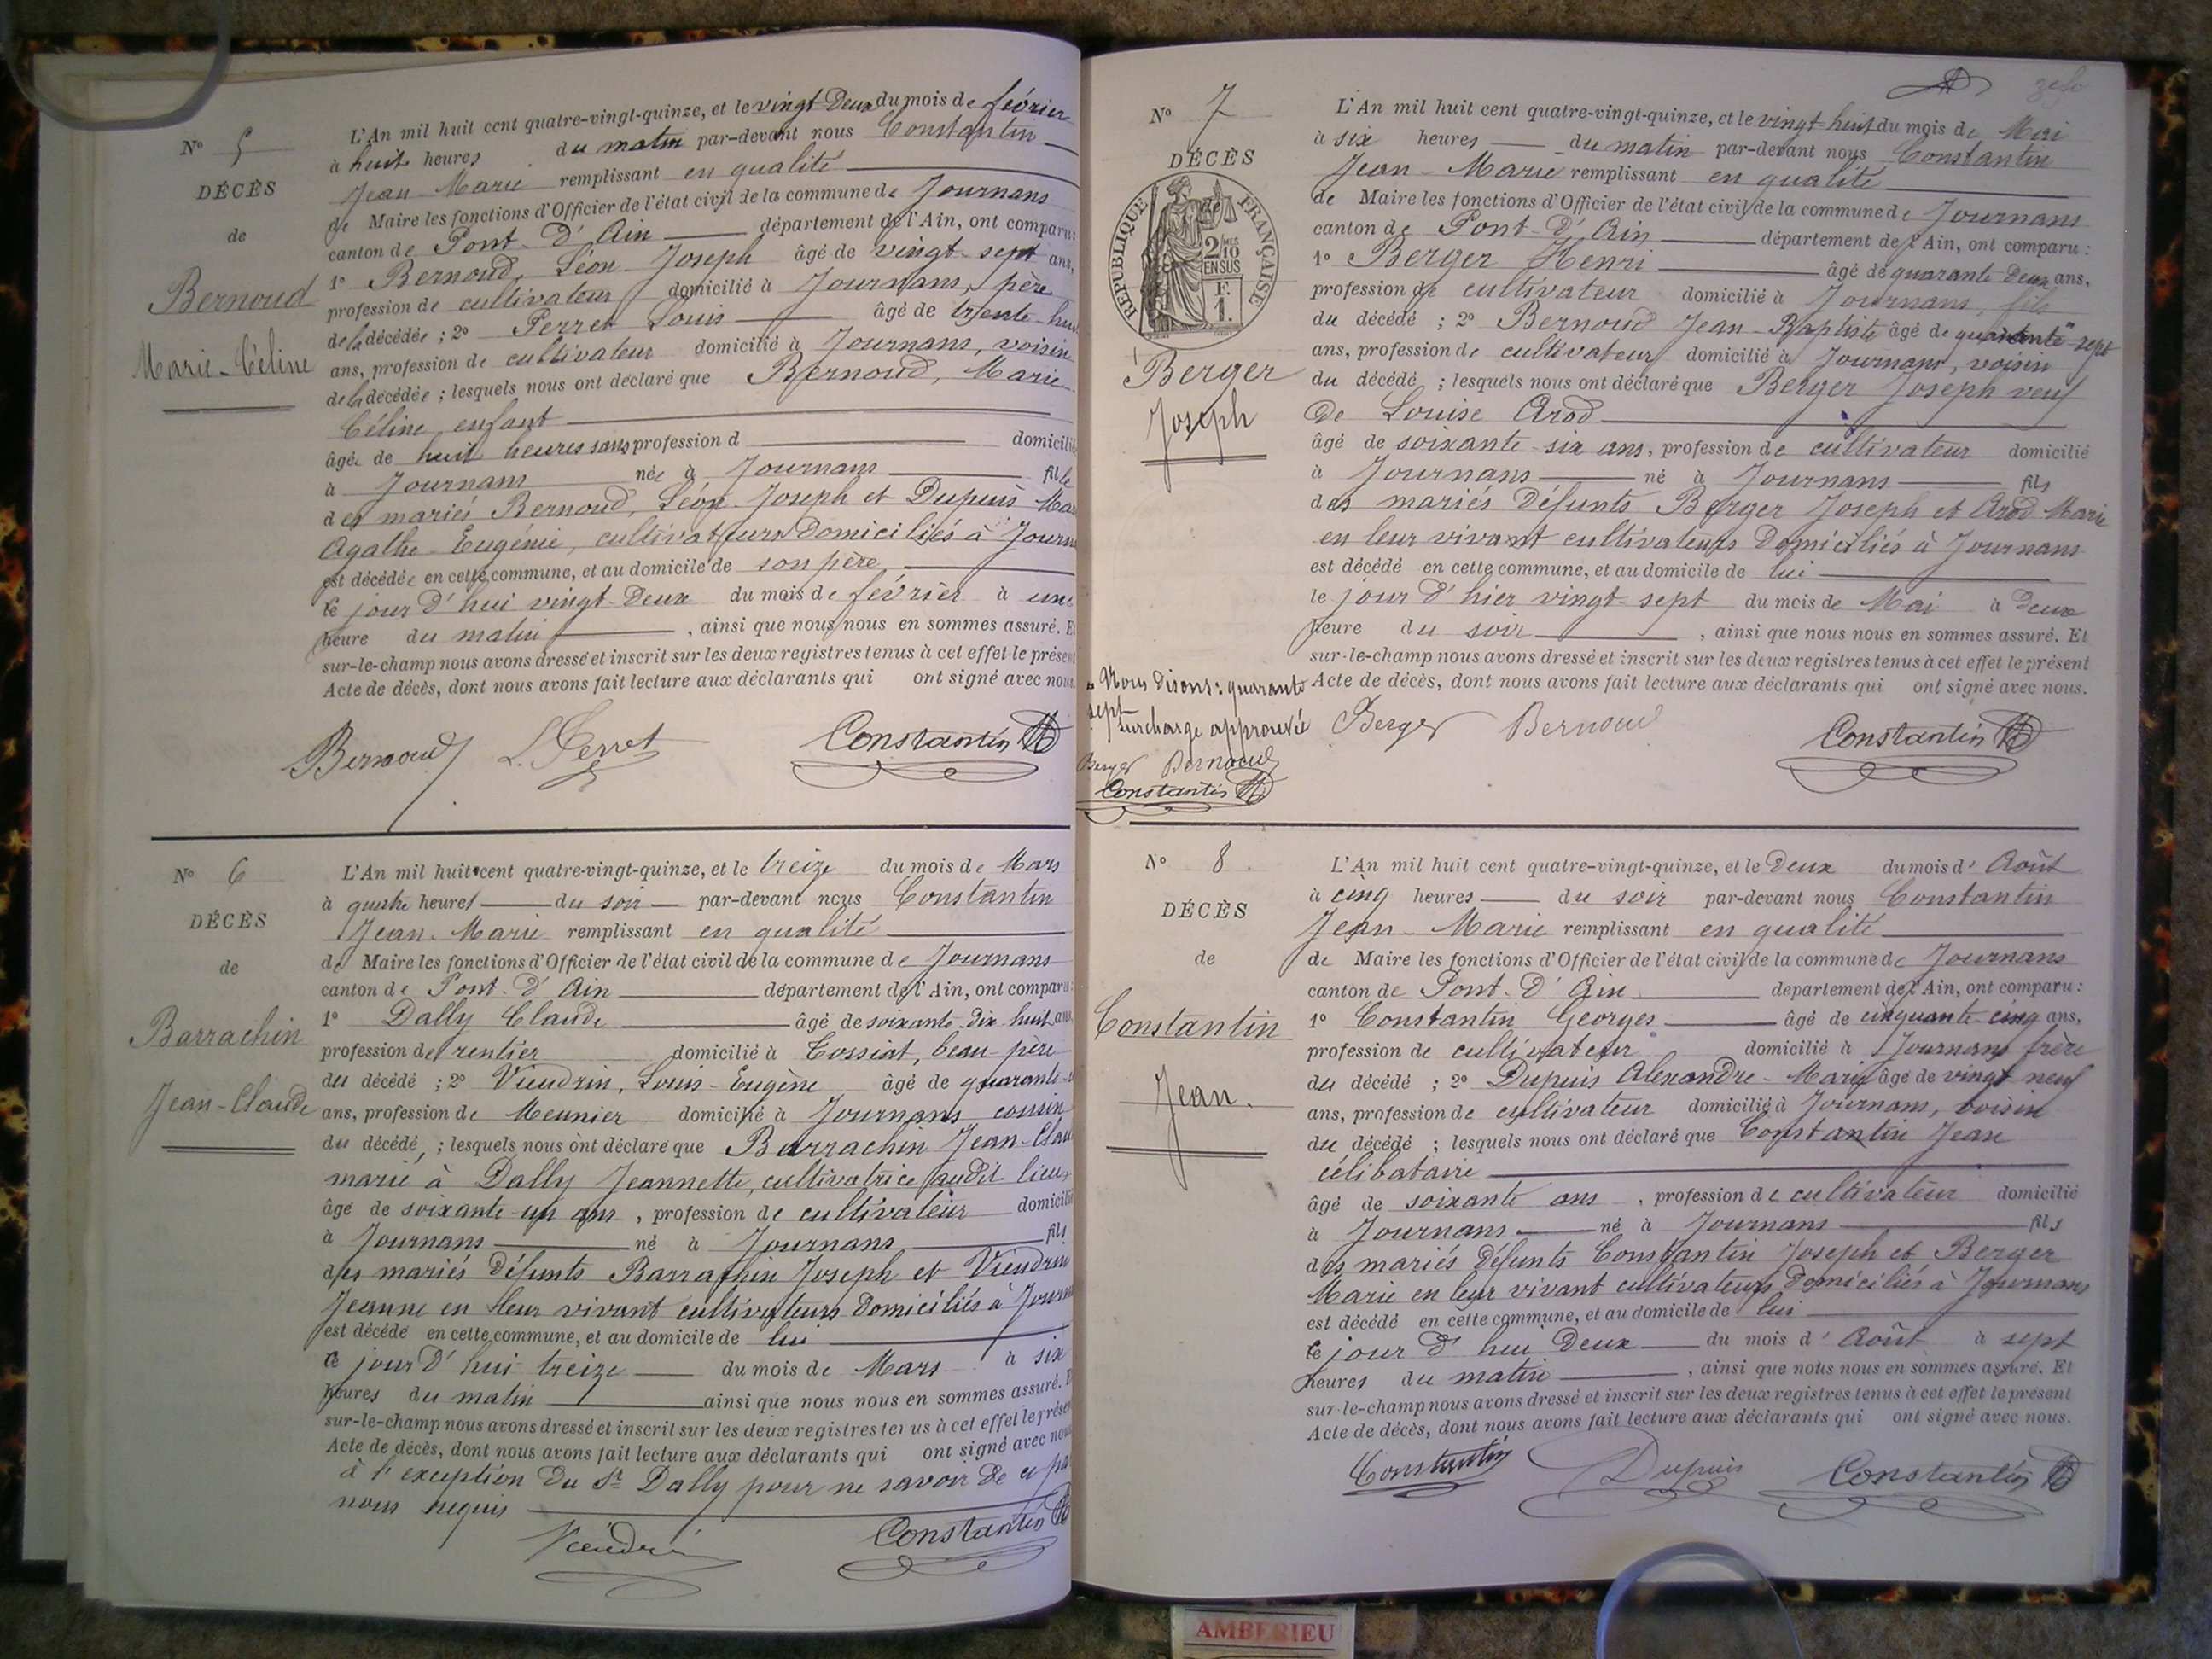 N° 5
DÉCÈS
de
Bernoud
Marie-Céline
L'An mil huit cent quatre-vingt-quinze, et le vingt-deux du mois de février
à huit heures du matin par-devant nous Constantin
Jean-Marie remplissant en qualité
de Maire les fonctions d'Officier de l'état civil de la commune de Journans
canton de Pont-d'Ain département de l'Ain, ont comparu :
1° Bernoud, Léon-Joseph âgé de vingt-sept ans,
profession de cultivateur domicilié à Journans, père
de la décédée ; 2° Perret Louis âgé de trente-huit
ans, profession de cultivateur domicilié à Journans, voisin
de la décédée ; lesquels nous ont déclaré que Bernoud, Marie
Céline, enfant
âgée de huit heures sans profession d domiciliée
à Journans née à Journans fille
des mariés Bernoud, Léon-Joseph et Dupuis
Agathe-Eugénie, cultivateurs domiciliés à
est décédée en cette commune, et au domicile de son père
le jour d'hui vingt-deux du mois de février à une
heure du matin , ainsi que nous nous en sommes assuré. Et
sur-le-champ nous avons dressé et inscrit sur les deux registres tenus à cet effet le présent
Acte de décès, dont nous avons fait lecture aux déclarants qui ont signé avec nous.
Bernoud L. Perret Constantin
N° 6
DÉCÈS
de
Barrachin
Jean-Claude
L'An mil huit cent quatre-vingt-quinze, et le treize du mois de Mars
à quatre heures du soir par-devant nous Constantin
Jean-Marie remplissant en qualité
de Maire les fonctions d'Officier de l'état civil de la commune de Journans
canton de Pont-d'Ain département de l'Ain, ont comparu :
1° Dally Claude âgé de soixante-dix-huit ans,
profession de rentier domicilié à Tossiat, beau-père
du décédé ; 2° Vieudrin, Louis-Eugène âgé de quarante
ans, profession de Meunier domicilié à Journans cousin
du décédé, ; lesquels nous ont déclaré que Barrachin Jean-
marié à Dally Jeannette, cultivatrice audit lieu,
âgé de soixante-un ans , profession de cultivateur domicilié
à Journans né à Journans fils
des mariés défunts Barrachin Joseph et Vieudrin
Jeanne en leur vivant cultivateurs domiciliés à
est décédé en cette commune, et au domicile de lui
le jour d'hui treize du mois de Mars à six
heures du matin ainsi que nous nous en sommes assuré. Et
sur-le-champ nous avons dressé et inscrit sur les deux registres tenus à cet effet le présent
Acte de décès, dont nous avons fait lecture aux déclarants qui ont signé avec nous
à l'exception du Sr Dally pour ne savoir de ce par
nous requis
Vieudrin Constantin
N° 7
DÉCÈS
RÉPUBLIQUE FRANÇAISE
2/10
EN SUS
F.
1.
Berger
Joseph
L'An mil huit cent quatre-vingt-quinze, et le vingt-huit du mois de Mai
à six heures du matin par-devant nous Constantin
Jean-Marie remplissant en qualité
de Maire les fonctions d'Officier de l'état civil de la commune de Journans
canton de Pont-d'Ain département de l'Ain, ont comparu :
1° Berger Henri âgé de quarante-deux ans,
profession de cultivateur domicilié à Journans, fils
du décédé ; 2° Bernoud Jean-Baptiste âgé de quarante-sept
ans, profession de cultivateur domicilié à Journans, voisin
du décédé ; lesquels nous ont déclaré que Berger Joseph veuf
de Louise Arod
âgé de soixante-six ans, profession de cultivateur domicilié
à Journans né à Journans fils
des mariés défunts Berger Joseph et Arod Marie
en leur vivant cultivateurs domiciliés à Journans
est décédé en cette commune, et au domicile de lui
le jour d'hier vingt-sept du mois de Mai à deux
heure du soir , ainsi que nous nous en sommes assuré. Et
sur-le-champ nous avons dressé et inscrit sur les deux registres tenus à cet effet le présent
Acte de décès, dont nous avons fait lecture aux déclarants qui ont signé avec nous.
Berger Bernoud Constantin
Nous disons : quarante
sept
surcharge approuvée
Berger Bernoud
Constantin
N° 8
DÉCÈS
de
Constantin
Jean.
L'An mil huit cent quatre-vingt-quinze, et le deux du mois d'Août
à cinq heures du soir par-devant nous Constantin
Jean-Marie remplissant en qualité
de Maire les fonctions d'Officier de l'état civil de la commune de Journans
canton de Pont-d'Ain département de l'Ain, ont comparu :
1° Constantin Georges âgé de cinquante-cinq ans,
profession de cultivateur domicilié à Journans frère
du décédé ; 2° Dupuis Alexandre-Marie âgé de vingt-neuf
ans, profession de cultivateur domicilié à Journans, voisin
du décédé ; lesquels nous ont déclaré que Constantin Jean
célibataire
âgé de soixante ans , profession de cultivateur domicilié
à Journans né à Journans fils
des mariés défunts Constantin Joseph et Berger
Marie en leur vivant cultivateurs domiciliés à Journans
est décédé en cette commune, et au domicile de lui
le jour d'hui deux du mois d'Août à sept
heures du matin , ainsi que nous nous en sommes assuré. Et
sur-le-champ nous avons dressé et inscrit sur les deux registres tenus à cet effet le présent
Acte de décès, dont nous avons fait lecture aux déclarants qui ont signé avec nous.
Constantin Dupuis Constantin
AMBERIEU